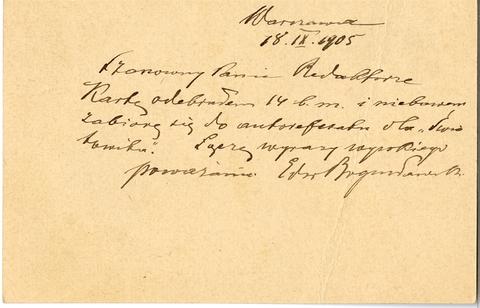 Warszawa
18.IX.1905
Szanowny Panie Redaktorze
Kartę odebrałem 14 b.m. i niebawem
zabiorę się do autoreferatu dla „Świa
towita”. Łączę wyrazy wysokiego
poważania Edw